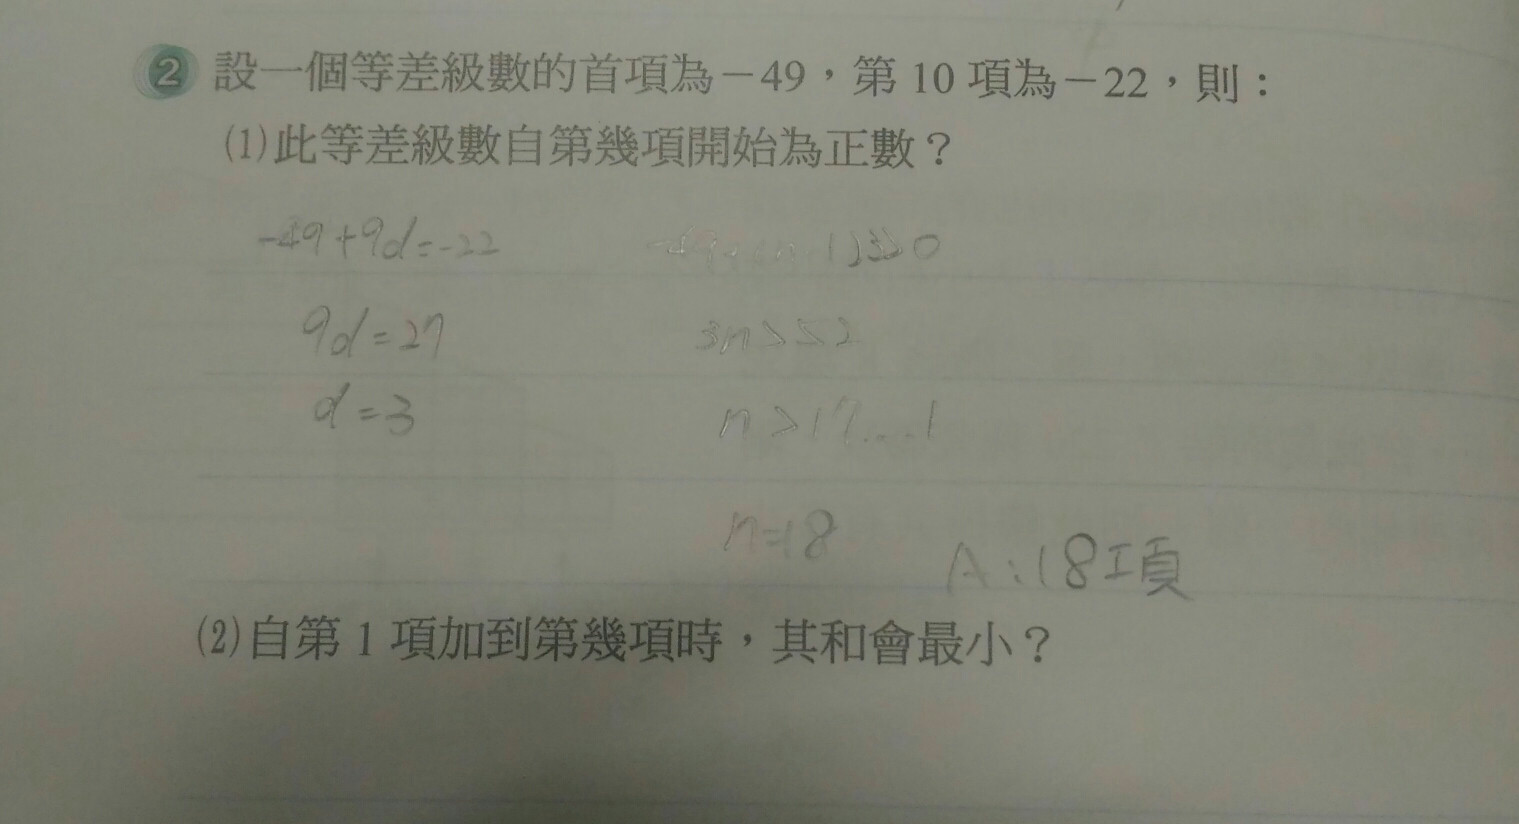 2 設一個等差級數的首項為－49，第 10 項為－22，則：
(1)此等差級數自第幾項開始為正數？
-49+9d=-22
9d=27
d=3
-49+(n-1)3>0
3n>52
n>17...1
n=18
A:18項
(2)自第 1 項加到第幾項時，其和會最小？